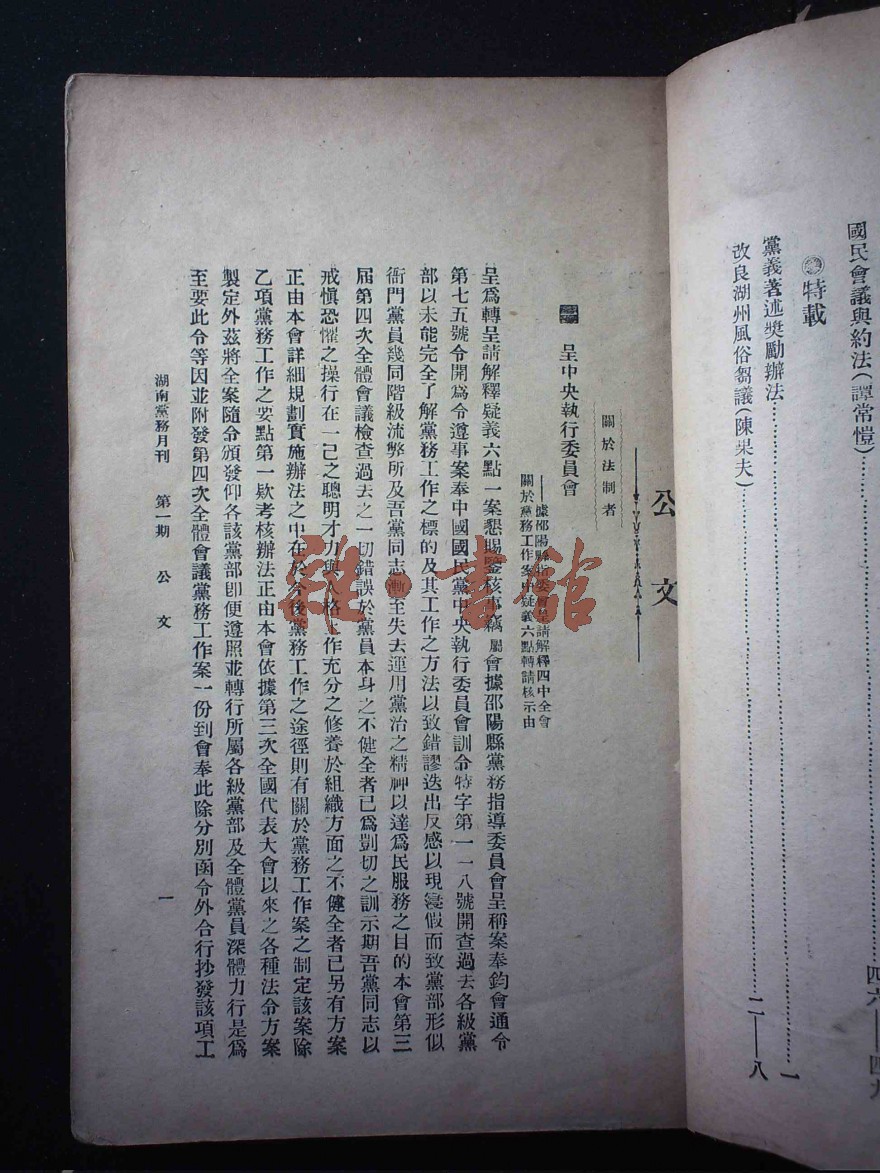 國民會議與約法(譚常愷)……四六——四九
特載
黨義著述奬勵辦法……一
改良湖州風俗芻議(陳果夫)……二——八
公文
關於法制者
呈中央執行委員會
——據邵陽縣指委會呈請解釋四中全會
關於黨務工作案中疑義六點轉請核示由
呈爲轉呈請解釋疑義六點一案懇賜鑒核事竊屬會據邵陽縣黨務指導委員會呈稱案奉鈞會通令
第七五號令開爲令遵事案奉中國國民黨中央執行委員會訓令特字第一一八號開查過去各級黨
部以未能完全了解黨務工作之標的及其工作之方法以致錯謬迭出反感以現寖假而致黨部形似
衙門黨員幾同階級流弊所及吾黨同志漸至失去運用黨治之精神以達爲民服務之目的本會第三
屆第四次全體會議檢查過去之一切錯誤於黨員本身之不健全者已爲剴切之訓示期吾黨同志以
戒慎恐懼之操行在一己之聰明才力與人格上作充分之修養於組織方面之不健全者已另有方案
正由本會詳細規劃實施辦法之中在於今後黨務工作之途徑則有關於黨務工作案之制定該案除
乙項黨務工作之要點第一欵考核辦法正由本會依據第三次全國代表大會以來之各種法令方案
製定外茲將全案隨令頒發仰各該黨部卽便遵照並轉行所屬各級黨部及全體黨員深體力行是爲
至要此令等因並附發第四次全體會議黨務工作案一份到會奉此除分別函令外合行抄發該項工
湖南黨務月刊 第一期 公文 一
雜·書館